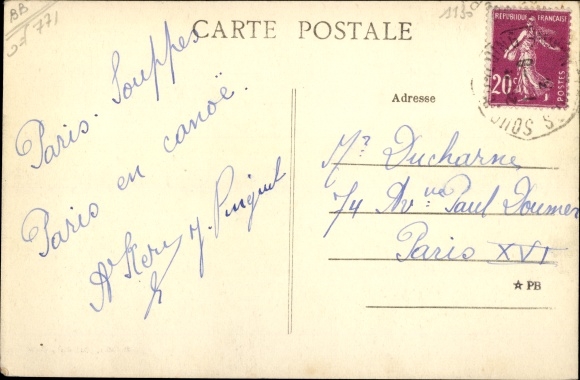 BB
771
1130
CARTE POSTALE
RÉPUBLIQUE FRANÇAISE
20c
POSTES
Paris. Souppes
Paris en canoë.
Adresse
Mr Ducharne
74 Av. ue Paul Doumer
Paris XVI
☆ PB